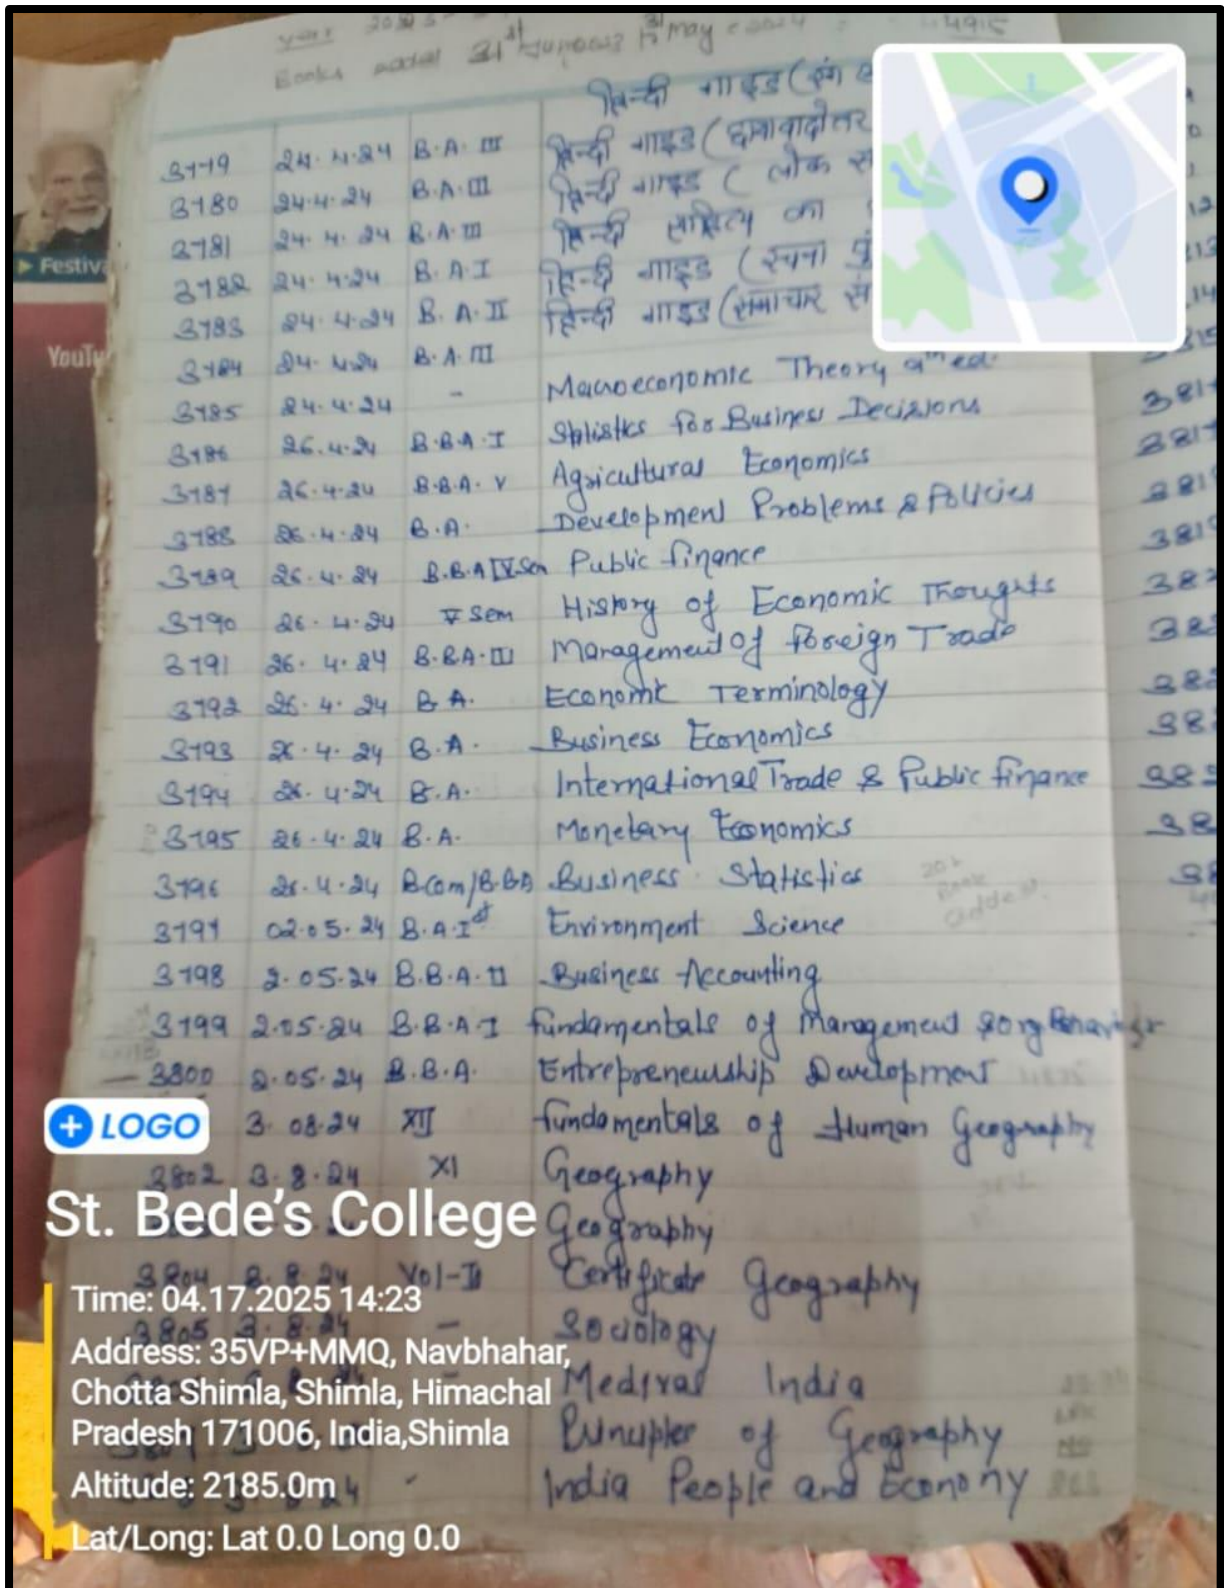 year
Books added 31st May 2024
हिन्दी गाइड
3779 24.4.24 B.A. III हिन्दी गाइड (छायावादोत्तर
3780 24.4.24 B.A. III हिन्दी गाइड ( लोक
3781 24.4.24 B.A. III हिन्दी साहित्य का
3782 24.4.24 B.A. I हिन्दी गाइड (रचना
3783 24.4.24 B.A. II हिन्दी गाइड (समाचार
3784 24.4.24 B.A. III
3785 24.4.24 - Macroeconomic Theory
3786 26.4.24 B.B.A. I for Business Decisions
3787 26.4.24 B.B.A. V Agricultural Economics
3788 26.4.24 B.A. Development Problems & Policies
3789 26.4.24 B.B.A Sem Public finance
3790 26.4.24 V Sem History of Economic Thoughts
3791 26.4.24 B.B.A. III Management of Foreign Trade
3792 26.4.24 B.A. Economic Terminology
3793 26.4.24 B.A. Business Economics
3794 26.4.24 B.A. International Trade & Public finance
3795 26.4.24 B.A. Monetary Economics
3796 26.4.24 B.Com/B.B.A Business Statistics
3797 02.05.24 B.A. Ist Environment Science
3798 2.05.24 B.B.A. II Business Accounting
3799 2.05.24 B.B.A. I fundamentals of Management & org
3800 2.05.24 B.B.A. Entrepreneurship Development
3.08.24 XII fundamentals of Human Geography
3802 3.8.24 XI Geography
Geography
3804 3.8.24 Vol-II Certificate Geography
3805 3.8.24 - Sociology
India
of Geography
India People and Economy
Festiv
YouTu
LOGO
St. Bede's College
Time: 04.17.2025 14:23
Address: 35VP+MMQ, Navbhahar,
Chotta Shimla, Shimla, Himachal
Pradesh 171006, India,Shimla
Altitude: 2185.0m
Lat/Long: Lat 0.0 Long 0.0